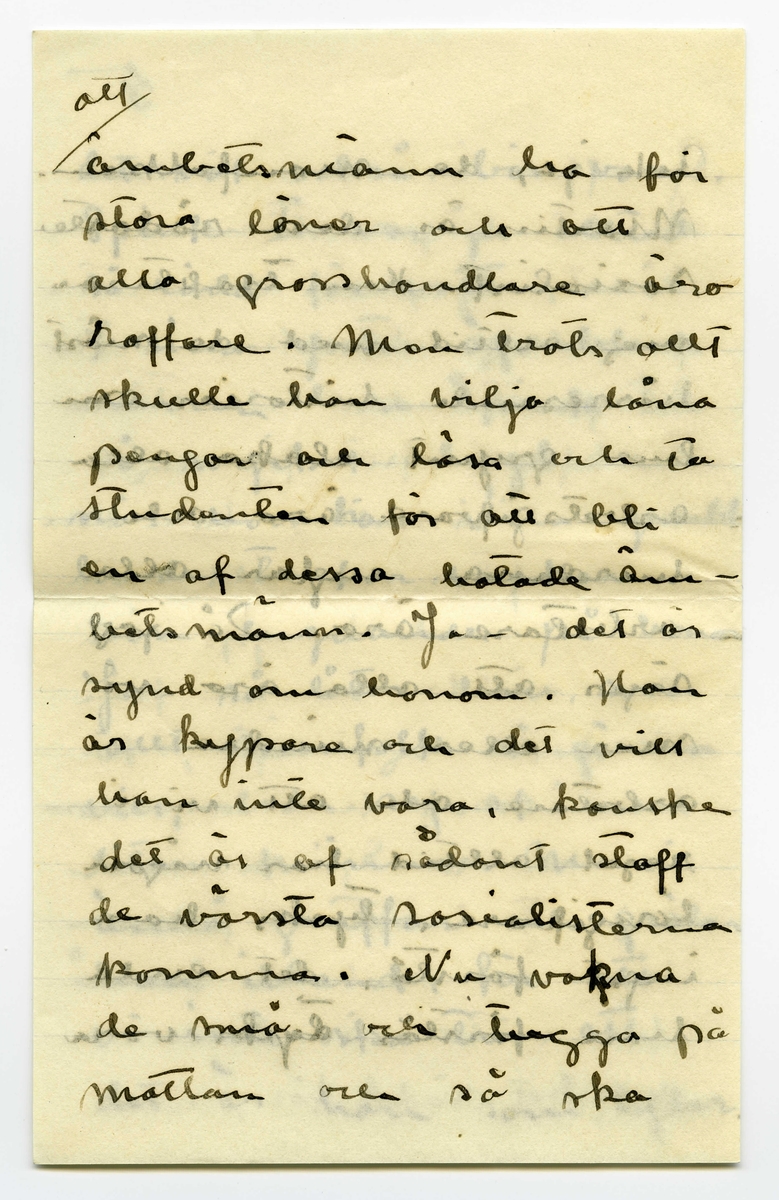 att
ämbetsmänn ha för
stora löner och att
alla grosshandlare äro
roffare. Men trots allt
skulle han vilja låna
pengar och läsa och ta
studenten för att bli
en af dessa hatade äm-
betsmänn. Ja - det är
synd om honom. Han
är kypare och det vill
han inte vara, kanske
det är af sådant staff
de värsta sosialisterna
komma. Nu vakna
de små och tugga på
mattan och så ska